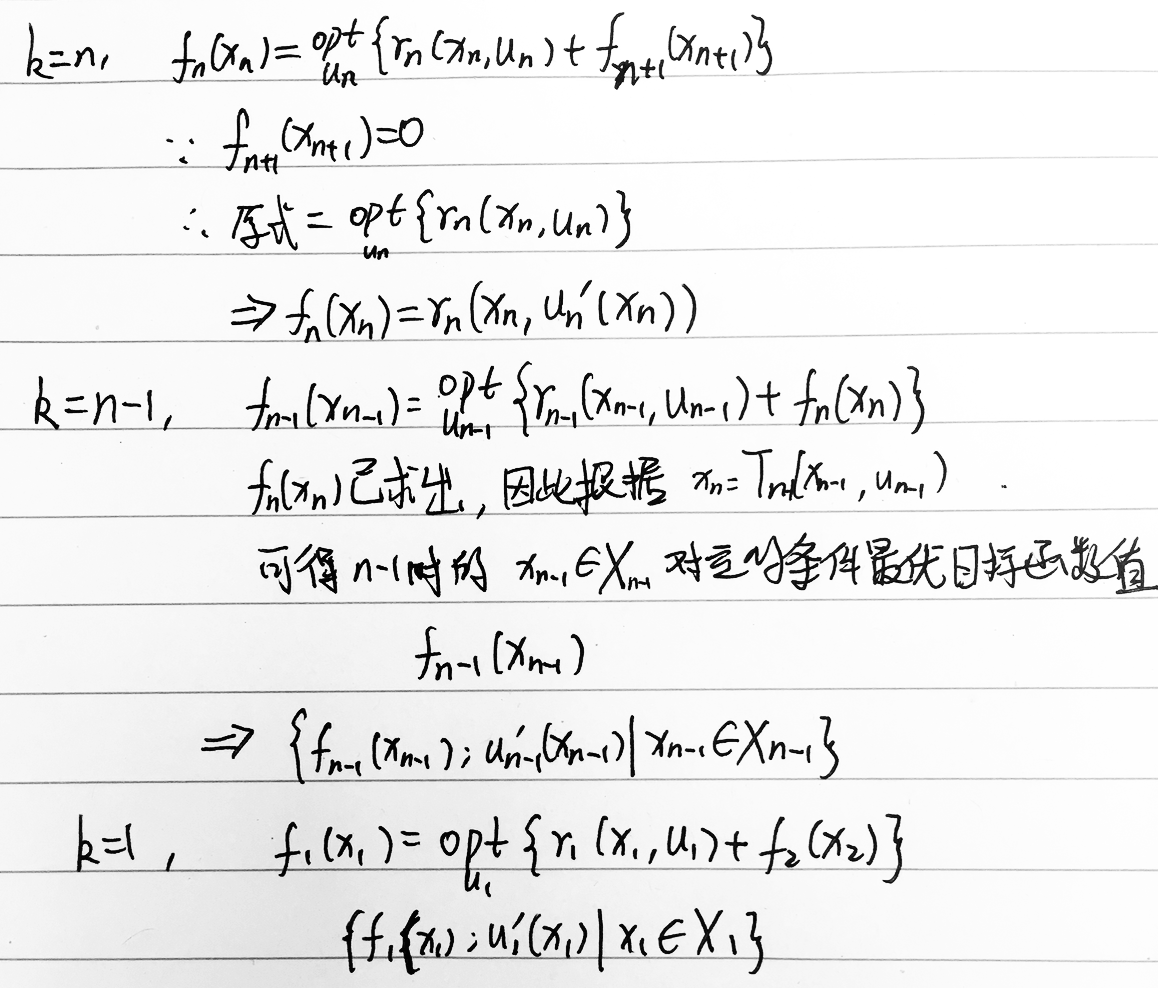 k=n, fₙ(xₙ)=opt_{uₙ}{rₙ(xₙ,uₙ)+fₙ₊₁(xₙ₊₁)}
∵ fₙ₊₁(xₙ₊₁)=0
∴ 原式=opt_{uₙ}{rₙ(xₙ,uₙ)}
⇒fₙ(xₙ)=rₙ(xₙ,uₙ′(xₙ))
k=n-1, fₙ₋₁(xₙ₋₁)=opt_{uₙ₋₁}{rₙ₋₁(xₙ₋₁,uₙ₋₁)+fₙ(xₙ)}
fₙ(xₙ)已求出,因此根据 xₙ=Tₙ₋₁(xₙ₋₁,uₙ₋₁).
可得n-1时的 xₙ₋₁∈Xₙ₋₁ 对应的条件最优目标函数值
fₙ₋₁(xₙ₋₁)
⇒ {fₙ₋₁(xₙ₋₁);uₙ₋₁′(xₙ₋₁)|xₙ₋₁∈Xₙ₋₁}
k=1, f₁(x₁)=opt_{u₁}{r₁(x₁,u₁)+f₂(x₂)}
{f₁(x₁);u₁′(x₁)|x₁∈X₁}